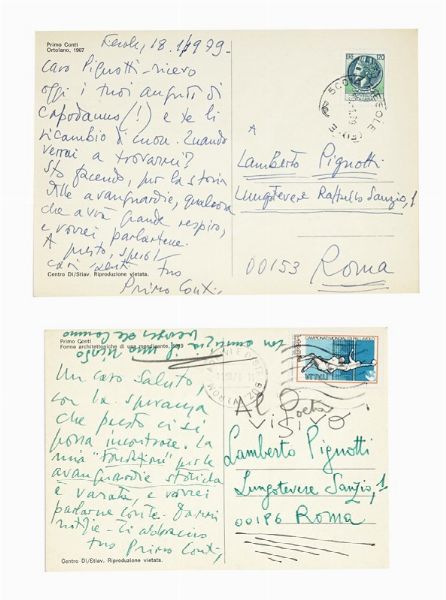 Primo Conti
Ortolano, 1967
Fiesole, 18.1.1979-
Caro Pignotti - ricevo
oggi i tuoi auguri di
Capodanno (!) e te li
ricambio di cuore. Quando
verrai a trovarmi?
Sto facendo, per la storia
delle avanguardie, qualcosa
che avrà grande respiro,
e vorrei parlartene.
A presto, spero!
cari saluti tuo
Primo Conti.
Centro Di/Stiav. Riproduzione vietata.
120
FIESOLE
A
Lamberto Pignotti
Lungotevere Raffaello Sanzio, 1
00153 Roma
Primo Conti
Forme architettoniche di una mendicante
Un caro saluto,
con la speranza
che presto ci si
possa incontrare. La
mia "Fondazione" per le
avanguardie storiche
è varata, e vorrei
parlarne con te. Dammi
notizie - Ti abbraccio
tuo Primo Conti,
Centro Di/Stiav. Riproduzione vietata.
ITALIA
Al Poeta
VISIVO
Lamberto Pignotti
Lungotevere Sanzio, 1
00196 Roma